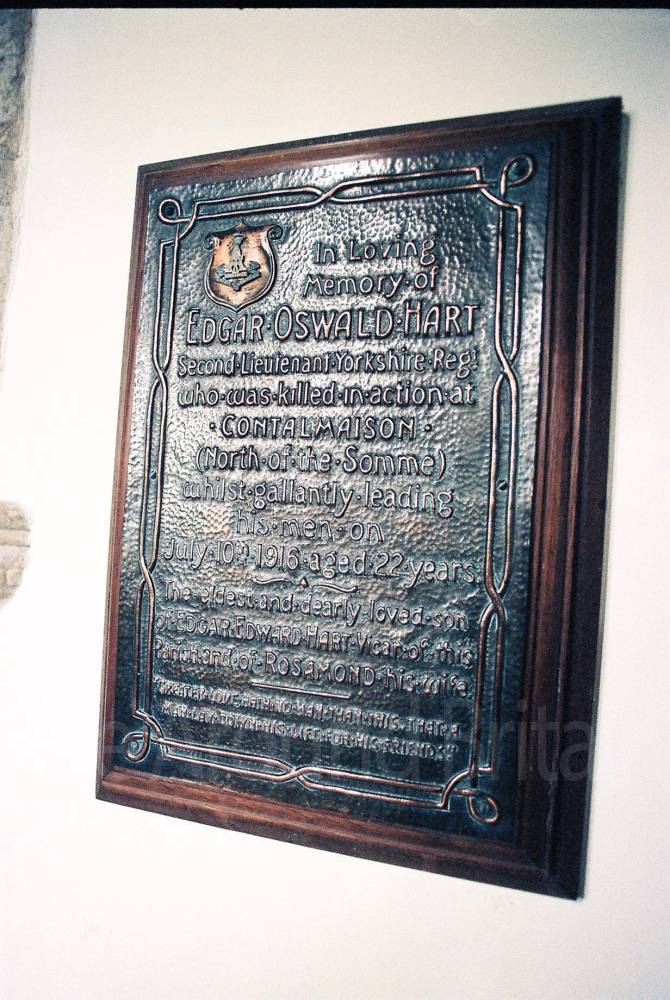 In Loving
Memory·of
EDGAR·OSWALD·HART
Second·Lieutenant·Yorkshire·Regt
who·was·killed·in·action·at
·CONTALMAISON·
(North·of·the·Somme)
whilst·gallantly·leading
his·men·on
July·10th·1916·aged·22·years.
The·eldest·and·dearly·loved·son
of·EDGAR·EDWARD·HART·Vicar·of·this
Parish·and·of·ROSAMOND·his·wife.
"GREATER·LOVE·HATH·NO·MAN·THAN·THIS·THAT·A
MAN·LAY·DOWN·HIS·LIFE·FOR·HIS·FRIENDS"